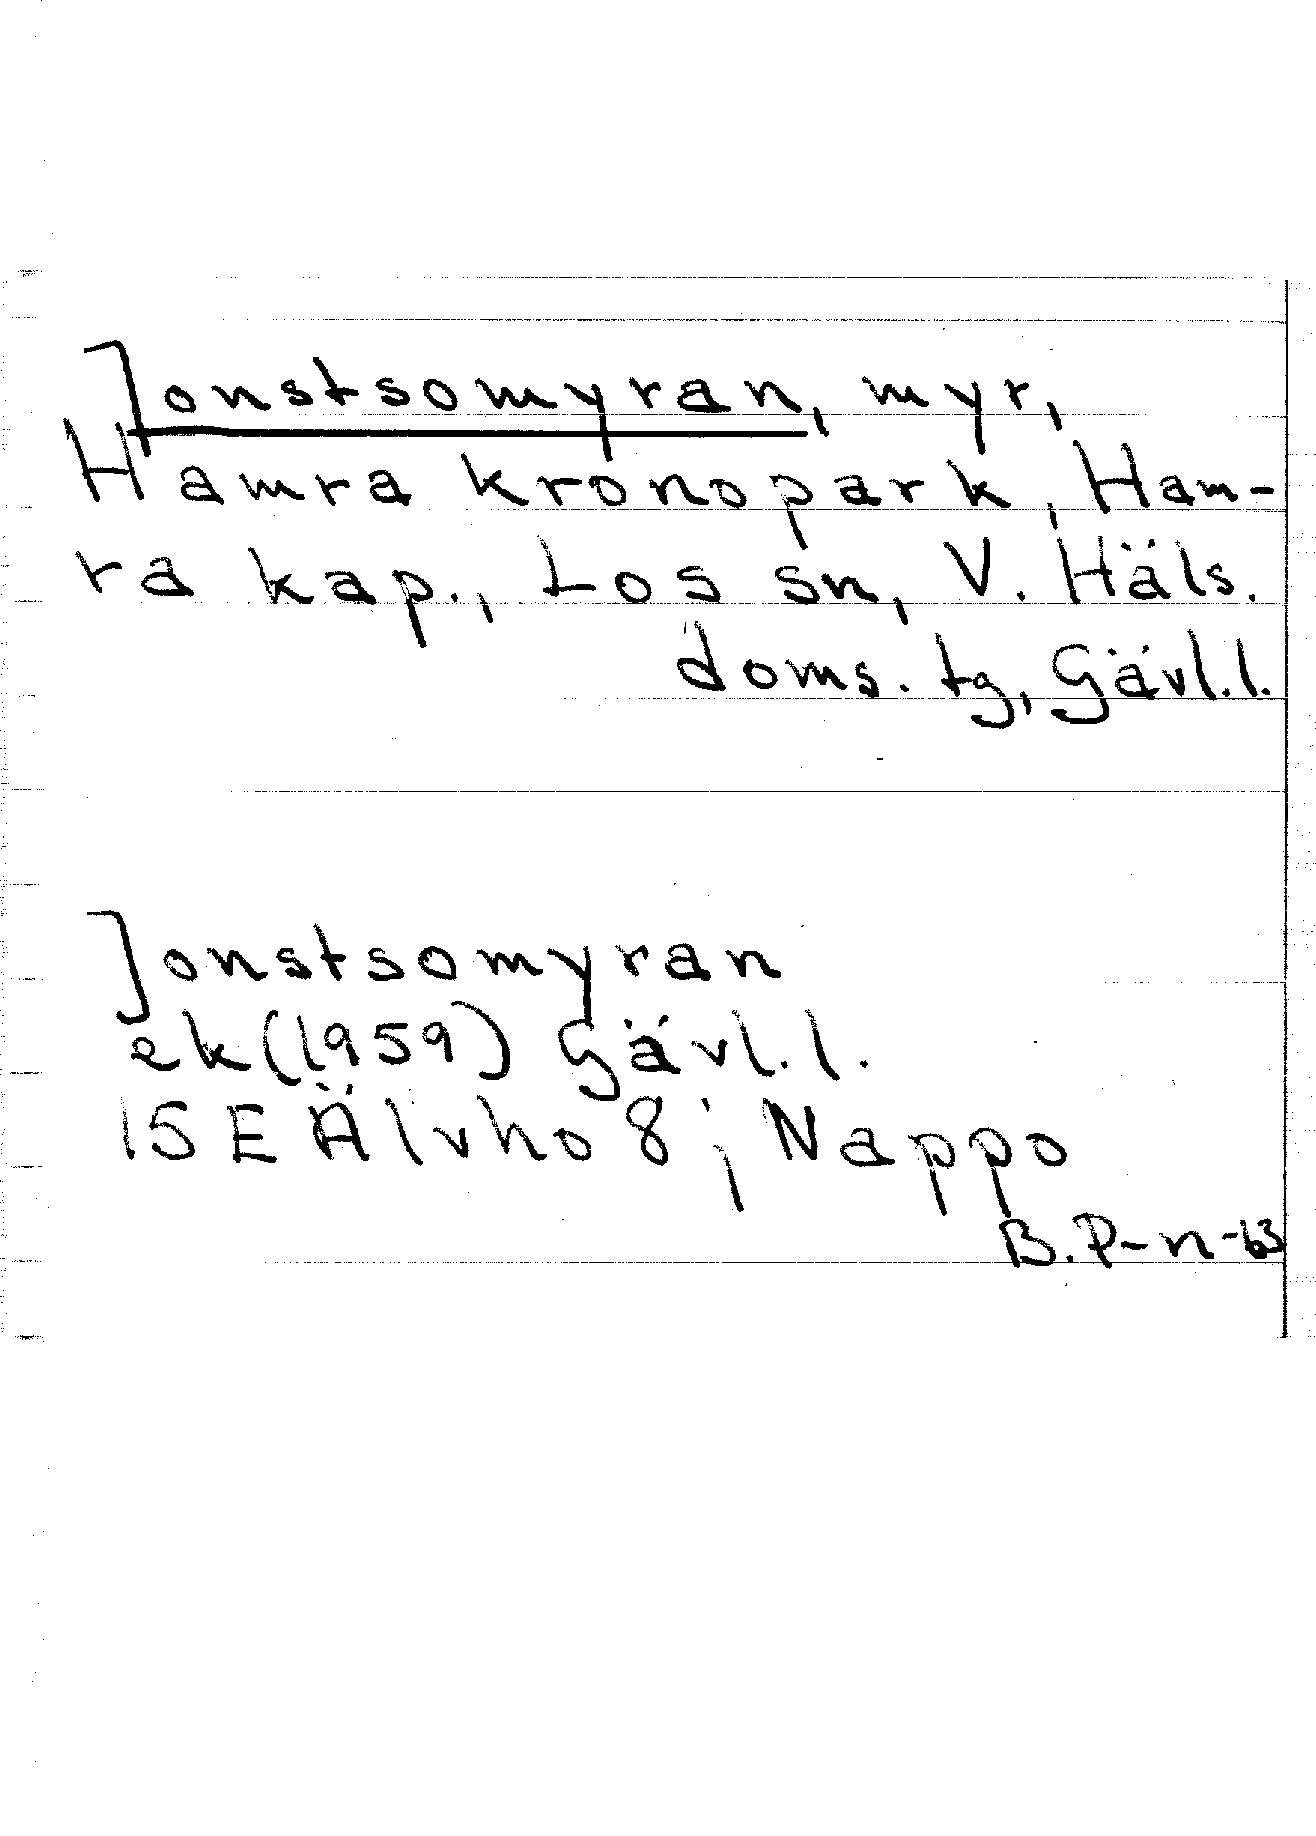 Jonstsomyran, myr,
Hamra kronopark, Ham-
ra kap., Los sn, V. Häls.
doms. tg, Gävl.l.
Jonstsomyran
ek (1959) Gävl.l.
15E Älvho 8; Nappo
B.P-n-63